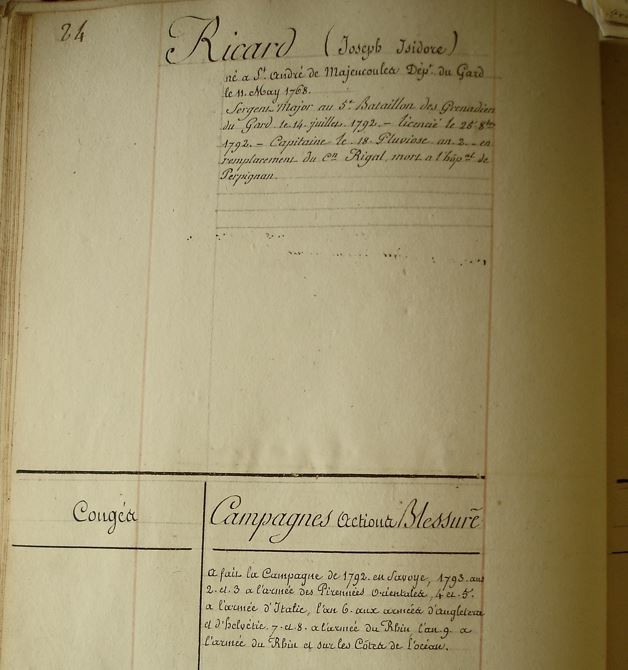 24
Ricard (Joseph Isidore)
né a St. André de Majencoules Dépt. du Gard
le 11. May 1768.
Sergent-Major au 5e Bataillon des Grenadiers
du Gard le 14. juillet 1792. - licencié le 26 8bre
1792. - Capitaine le 18 Pluviose an 2. - en
remplacement du Cen Rigal, mort a l'hôpal de
Perpignan.
Congés
Campagnes actions Blessures
a fait la Campagne de 1792. en Savoye, 1793. ans
2. et 3. a l'armée des Pirennées Orientales, 4. et 5.
a l'armée d'Italie, l'an 6. aux armées d'angleterre
et d'helvétie. 7. et 8. a l'armée du Rhin, l'an 9. a
l'armée du Rhin et sur les Côtes de l'océan.